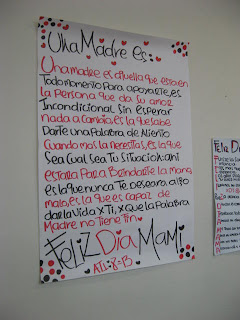 Una Madre es:
Una madre es aquella que esta en
Todo momento Para apoyarte, es
la persona que da su amor
Incondicional Sin Esperar
nada a cambio, es la que sabe
Darte una Palabra de Aliento
Cuando mas la necesitas, es la que
Sea Cual Sea Tu Situacion: ahi
estara Para Brindarte la mano,
es la que nunca Te Deseara algo
malo, es la que es capaz de
dar la vida X Ti, X que la Palabra
Madre no Tiene fin.
Feliz Dia Mami
Feliz D